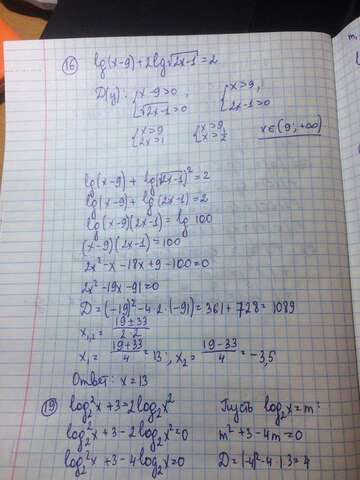 ⑯ lg(x-9)+2lg√(2x-1)=2
D(y): { x-9>0, √(2x-1)>0 { x>9, 2x-1>0
{ x>9, 2x>1 { x>9, x>2 x∈(9;+∞)
lg(x-9)+lg(√(2x-1))²=2
lg(x-9)+lg(2x-1)=2
lg(x-9)(2x-1)=lg 100
(x-9)(2x-1)=100
2x²-x-18x+9-100=0
2x²-19x-91=0
D=(-19)²-4·2·(-91)=361+728=1089
x₁,₂=(19±33)/(2·2)
x₁=(19+33)/4=13; x₂=(19-33)/4=-3,5
Ответ: x=13
⑲ log₂²x+3=2log₂x² Пусть log₂x=m:
log₂²x+3-2log₂x²=0 m²+3-4m=0
log₂²x+3-4log₂x=0 D=(-4)²-4·1·3=4